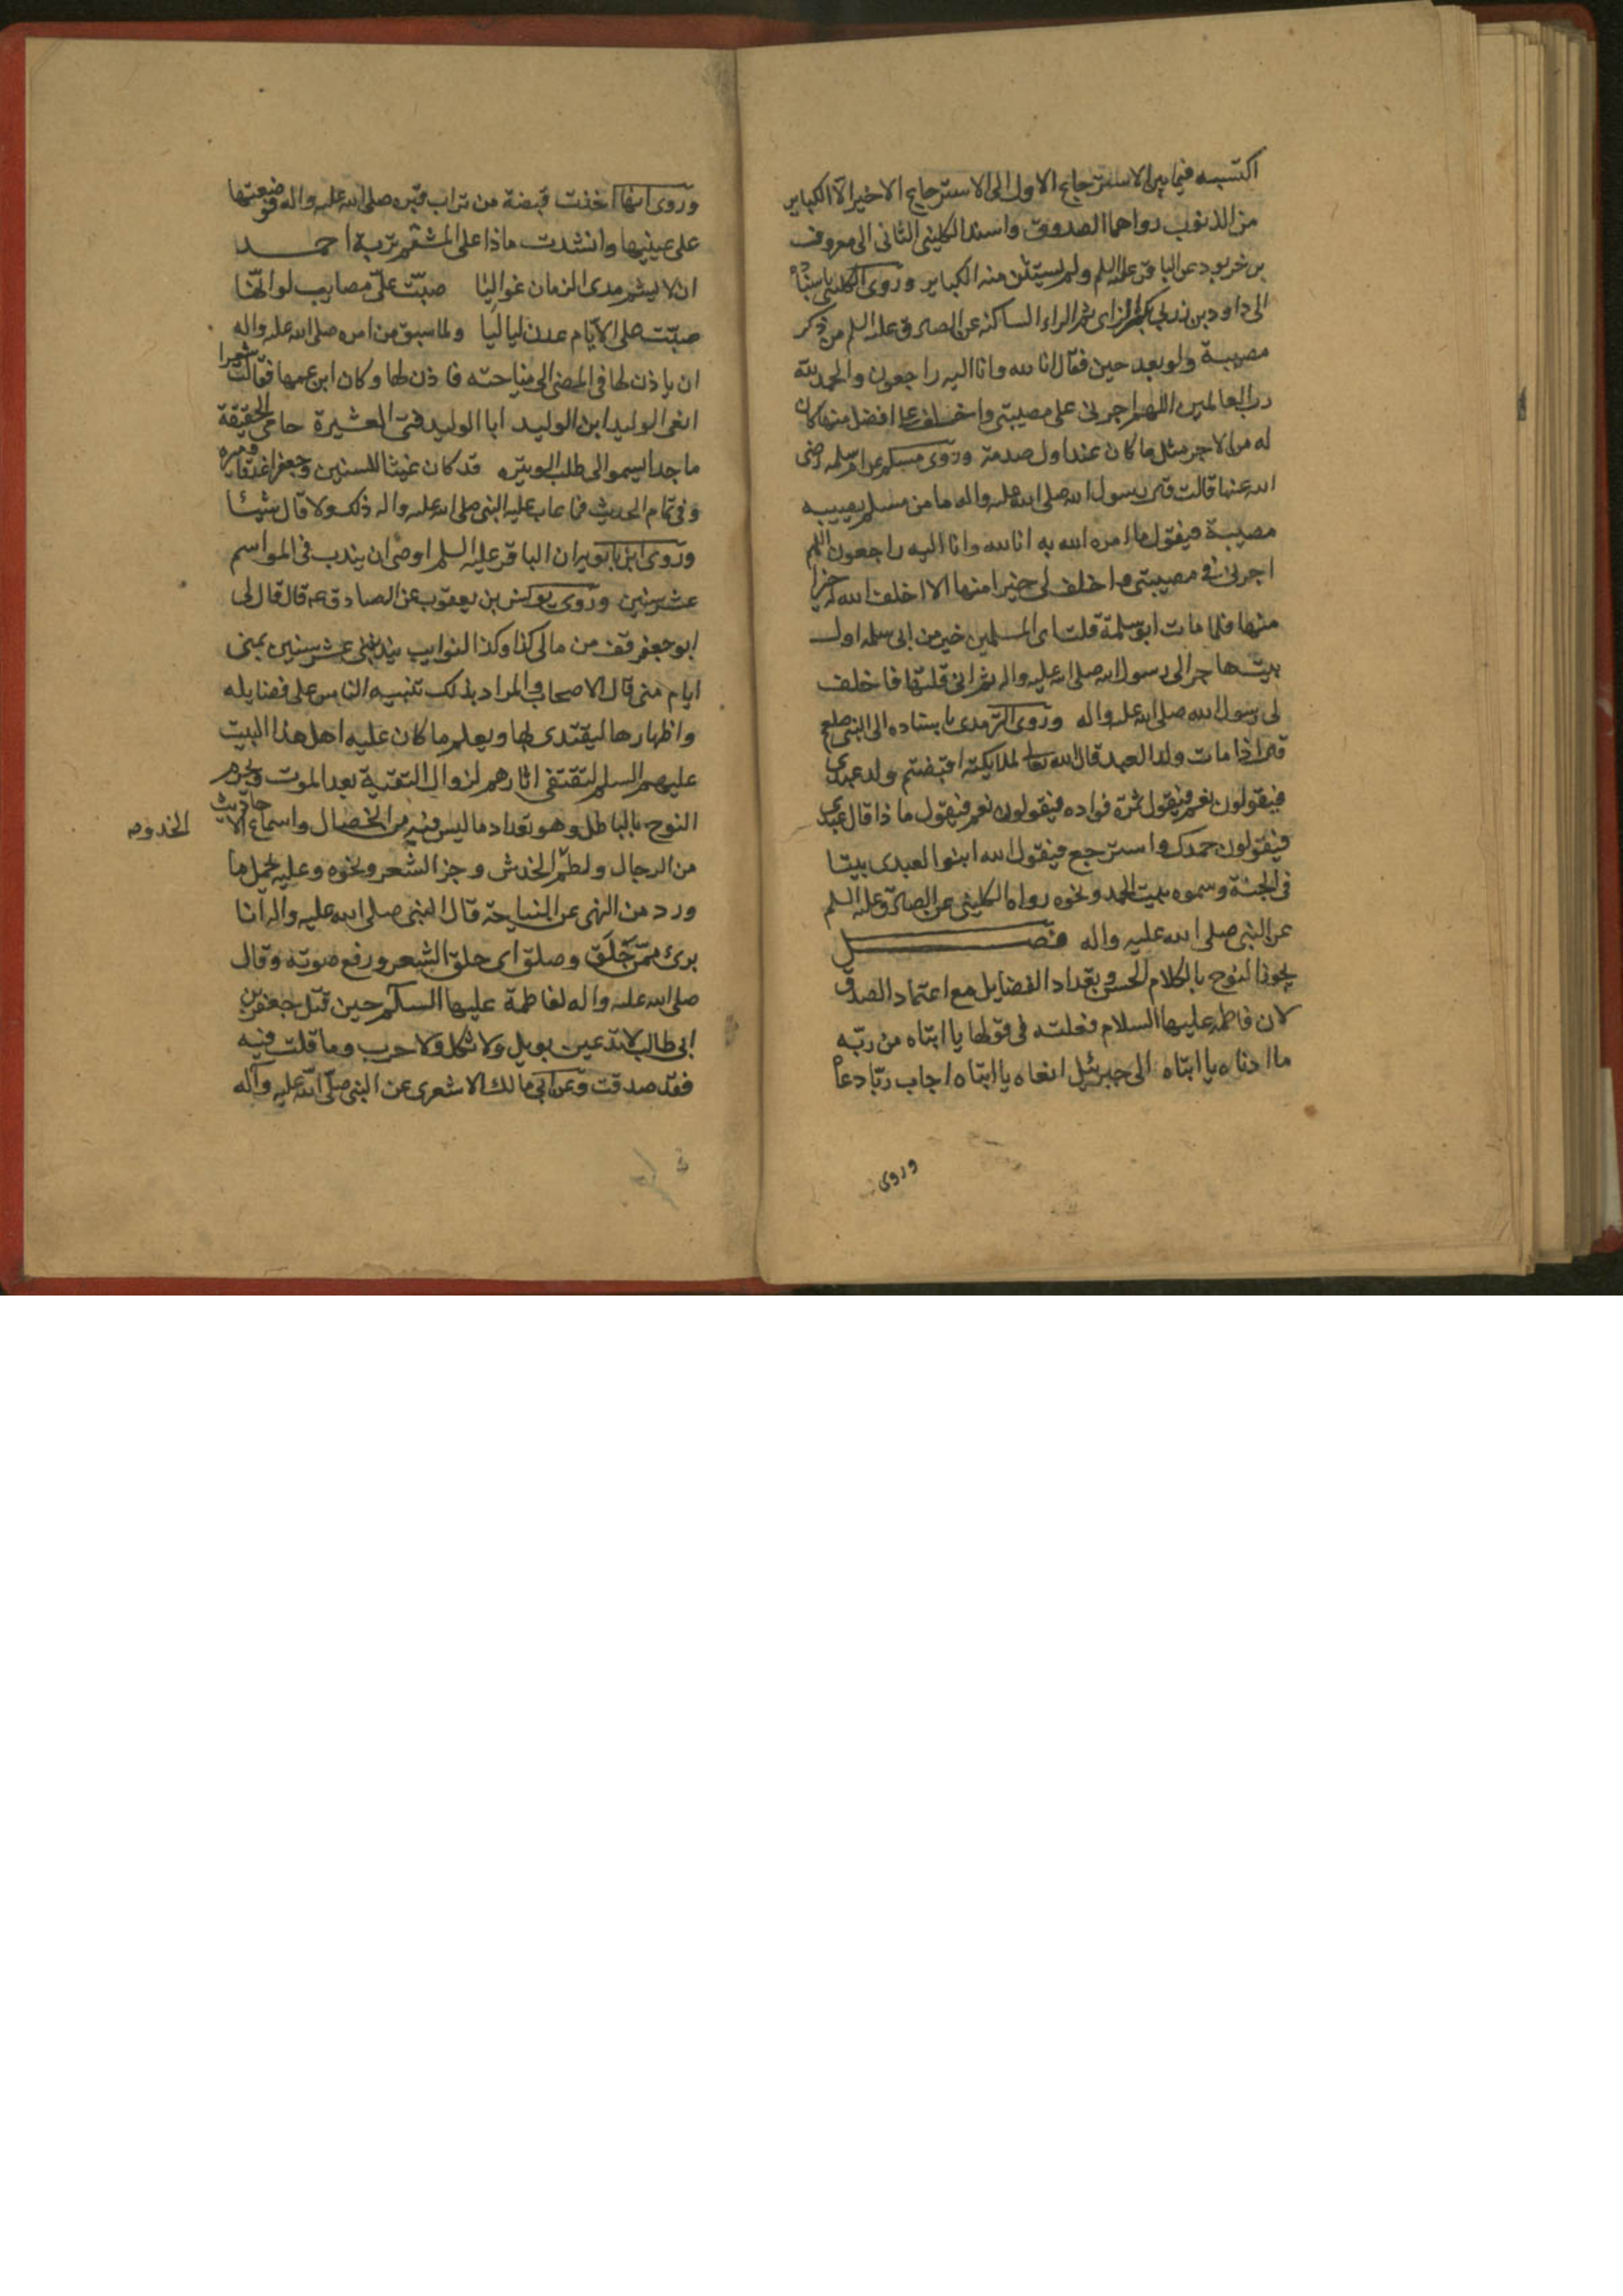 اكتسبه فيما بين الاسترجاع الاول الى الاسترجاع الاخير الا الكباير
من الذنوب رواهما الصدوق واسند الكليني الثاني الى معروف
بن خربود عن الباقر عليه السلم ولم يستثن منه الكباير وروى الكليني باسناده
الى داود بن زربى بكسر الزاى ثم الراء الساكنه عن الصادق عليه السلم من ذكر
مصيبة ولو بعد حين فقال انا لله وانا اليه راجعون والحمد لله
رب العالمين اللهم اجرنى على مصيبتى واخلف على افضل منها كان
له من الاجر مثل ما كان عند اول صدمة وروى مسلم عن ام سلمه رضى
الله عنها قالت قال رسول الله صلى الله عليه واله ما من مسلم يصيبه
مصيبة فيقول ما امره الله به انا لله وانا اليه راجعون اللهم
اجرنى فى مصيبتى واخلف لى خيرا منها الا اخلف الله له خيرا
منها فلما مات ابو سلمة قلت اى المسلمين خير من ابى سلمه اول
بيت هاجر الى رسول الله صلى الله عليه واله ثم انى قلتها فاخلف
لى رسول الله صلى الله عليه واله وروى الترمدى باسناده الى النبى صلعم
قال اذا مات ولد العبد قال الله تعالى لملايكته اقبضتم ولد عبدي
فيقولون نعم فيقول ثمرة فواده فيقولون نعم فيقول ماذا قال عبدي
فيقولون حمدك واسترجع فيقول الله ابنوا لعبدى بيتا
فى الجنة وسموه بيت الحمد ونحوه رواه الكلينى عن الصادق عليه السلم
عن النبى صلى الله عليه واله فصل
يجوز النوح بالكلام الحسن وبتعداد الفضايل مع اعتماد الصدق
لان فاطمه عليها السلام فعلته فى قولها يا ابتاه من ربه
ما ادناه يا ابتاه الى جبرئيل انعاه يا ابتاه اجاب ربا دعاه
وروى
وروى انها اخذت قبضة من تراب قبره صلى الله عليه واله فوضعتها
على عينيها وانشدت ماذا على المشتم تربة احمد
ان لا يشم مدى الزمان غواليا صبت على مصايب لو انها
صبت على الايام عدن لياليا ولما سبق من امره صلى الله عليه واله
ان ياذن لها فى المضى الى مناحته فاذن لها وكان ابن عمها فقالت شعرا
انعى الوليد ابن الوليد ابا الوليد فتى العشيرة حامى الحقيقة
ماجدا يسمو الى طلب الوتيره قد كان غيثا للسنين وجعفرا غدقا وميره
وفى تمام الحديث فما عاب عليه النبى صلى الله عليه واله ذلك ولا قال شيئا
وروى ابن بابويه ان الباقر عليه السلم اوصى ان يندب فى المواسم
عشر سنين وروى يونس بن يعقوب عن الصادق عه قال قال لى
ابو جعفر قف من مالى كذا وكذا لنوايب يندبننى عشر سنين بمنى
ايام منى قال الاصحاب والمراد بذلك تنبيه الناس على فضايله
واظهارها ليقتدى بها ويعلم ما كان عليه اهل هذا البيت
عليهم السلم لتقتفى اثارهم لزوال التقية بعد الموت ويحرم
النوح بالباطل وهو تعداد ما ليس فيه من الخصال واسماع الاحاديث
من الرجال ولطم الخدش وجز الشعر ونحوه وعليه يحمل ما
ورد من النهى عن النياحة قال النبى صلى الله عليه واله انا
برئ ممن حلق وصلق اى حلق الشعر ورفع صوته وقال
صلى الله عليه واله لفاطمة عليها السلام حين قتل جعفر بن
ابى طالب لا تدعين بويل ولا ثكل ولا حرب وما قلت فيه
فقد صدقت وعن ابى مالك الاشعرى عن النبى صلى الله عليه وآله